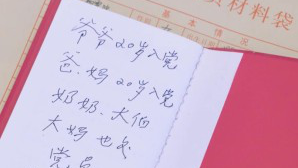 资材料袋
基本情况
爷爷20岁入党
爸.妈20岁入党
奶奶.大伯
大妈也是
党员